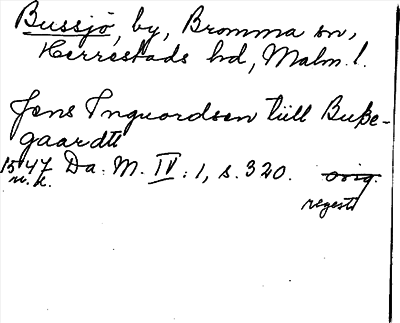 Bussjö, by, Bromma sn,
Herrestads hd, Malm. l.
Jens Inguordsen tiill Buße-
gaardtt
1547 Da. M. IV: 1, s. 320. orig.
u. k.
regest